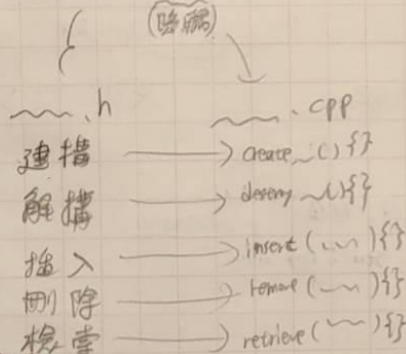 .h .cpp
建構 create~(){}
解構 destroy~(){}
插入 insert(~){}
刪除 remove(~){}
檢索 retrieve(~){}